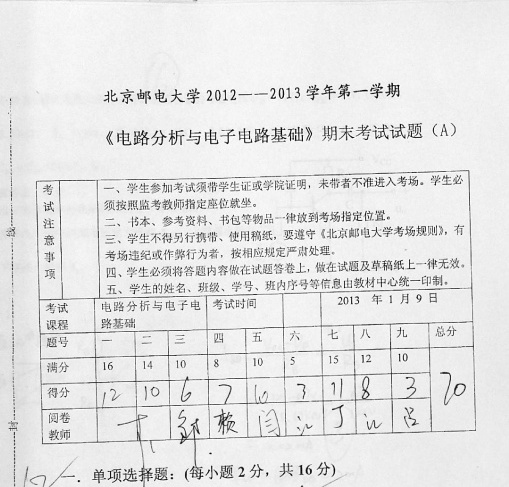 北京邮电大学 2012——2013 学年第一学期
《电路分析与电子电路基础》期末考试试题（A）
考试注意事项
一、学生参加考试须带学生证或学院证明，未带者不准进入考场。学生必
须按照监考教师指定座位就坐。
二、书本、参考资料、书包等物品一律放到考场指定位置。
三、学生不得另行携带、使用稿纸，要遵守《北京邮电大学考场规则》，有
考场违纪或作弊行为者，按相应规定严肃处理。
四、学生必须将答题内容做在试题答卷上，做在试题及草稿纸上一律无效。
五、学生的姓名、班级、学号、班内序号等信息由教材中心统一印制。
考试课程 电路分析与电子电路基础 考试时间 2013 年 1 月 9 日
题号 一 二 三 四 五 六 七 八 九 总分
满分 16 14 10 8 10 5 15 12 10
得分 12 10 6 7 10 3 11 8 3 70
阅卷教师 赖 闫 丁 吕
一．单项选择题：(每小题 2 分，共 16 分)